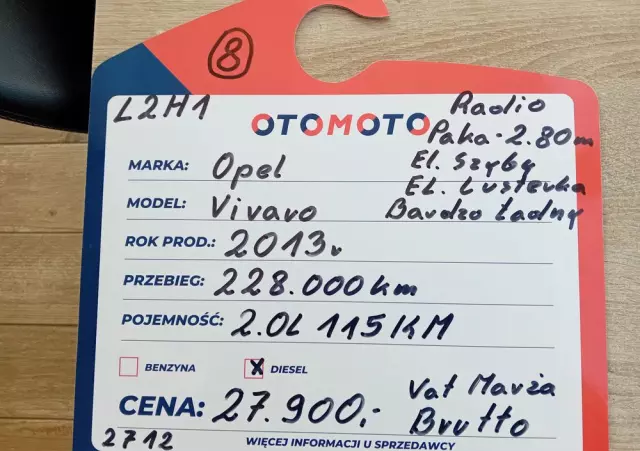 8
L2H1
OTOMOTO
Radio
Paka - 2.80m
El. Szyby
El. Lusterka
Bardzo Ładny
MARKA: Opel
MODEL: Vivaro
ROK PROD.: 2013r
PRZEBIEG: 228.000 km
POJEMNOŚĆ: 2.0L 115KM
BENZYNA X DIESEL
CENA: 27.900,-
Vat Marża
Brutto
2712
WIĘCEJ INFORMACJI U SPRZEDAWCY